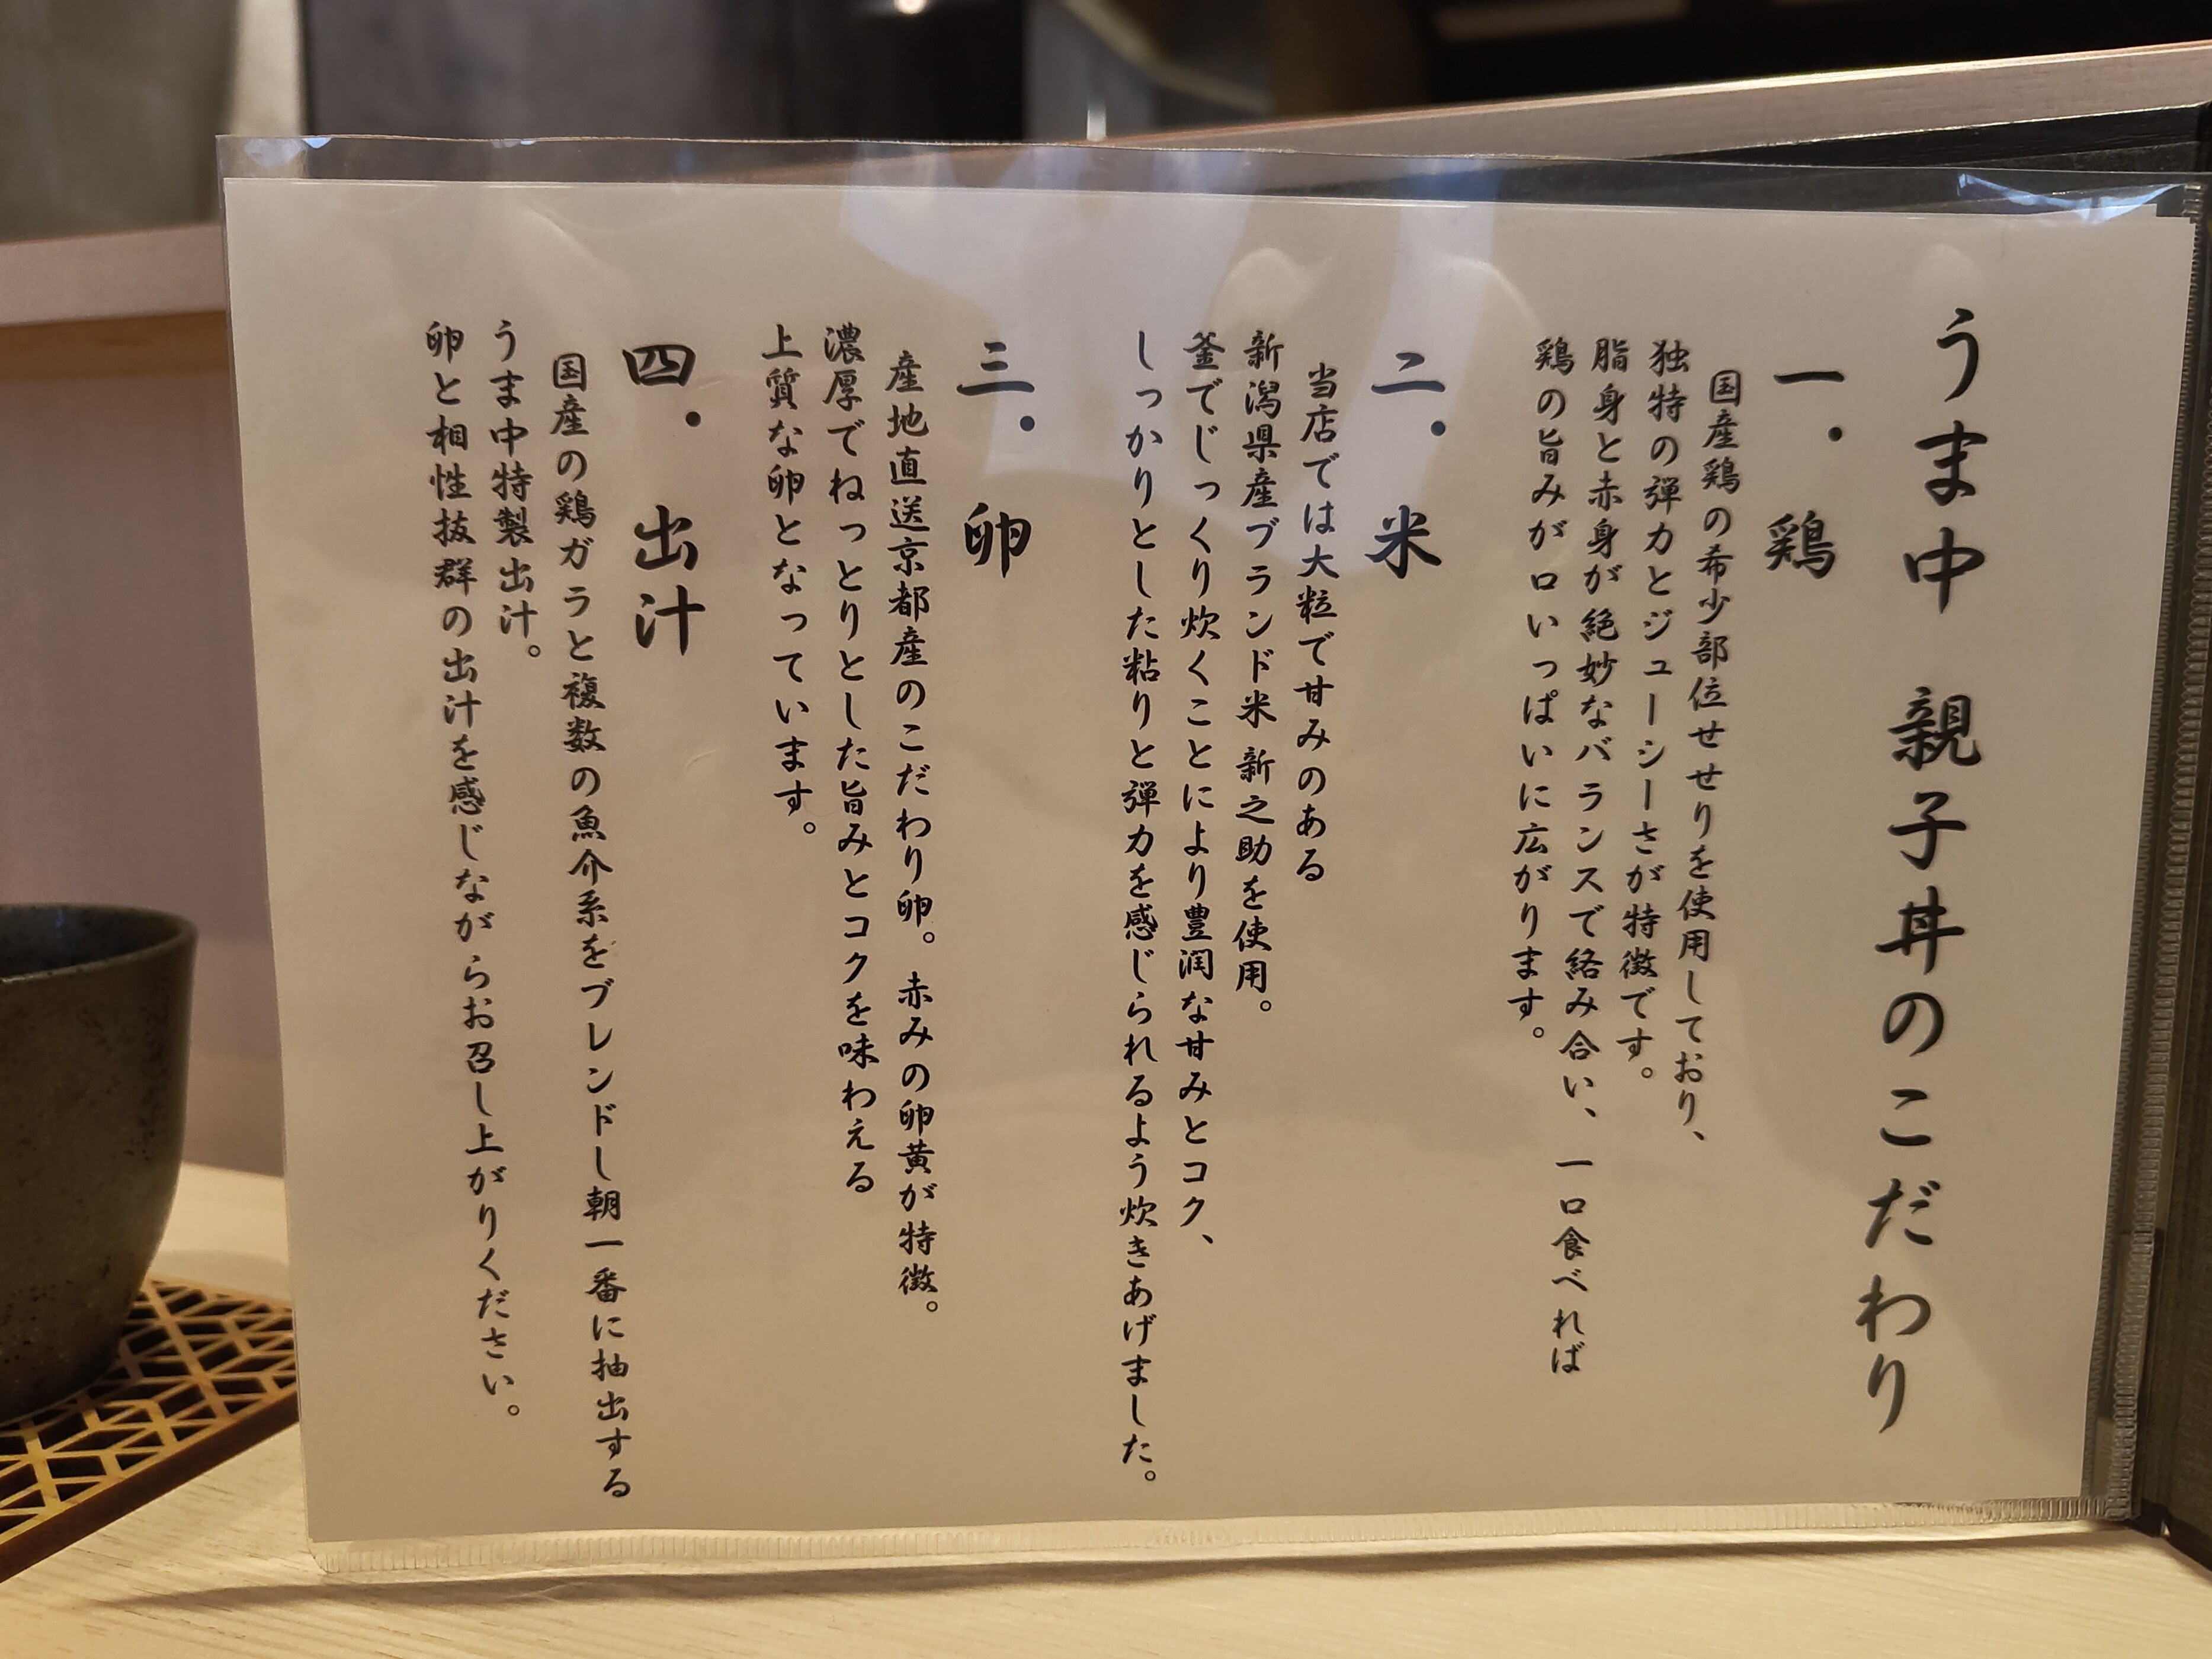 うま中 親子丼のこだわり
一. 鶏
国産鶏の希少部位せせりを使用しており、
独特の弾力とジューシーさが特徴です。
脂身と赤身が絶妙なバランスで絡み合い、一口食べれば
鶏の旨みが口いっぱいに広がります。
二. 米
当店では大粒で甘みのある
新潟県産ブランド米 新之助を使用。
釜でじっくり炊くことにより豊潤な甘みとコク、
しっかりとした粘りと弾力を感じられるよう炊きあげました。
三. 卵
産地直送京都産のこだわり卵。赤みの卵黄が特徴。
濃厚でねっとりとした旨みとコクを味わえる
上質な卵となっています。
四. 出汁
国産の鶏ガラと複数の魚介系をブレンドし朝一番に抽出する
うま中特製出汁。
卵と相性抜群の出汁を感じながらお召し上がりください。